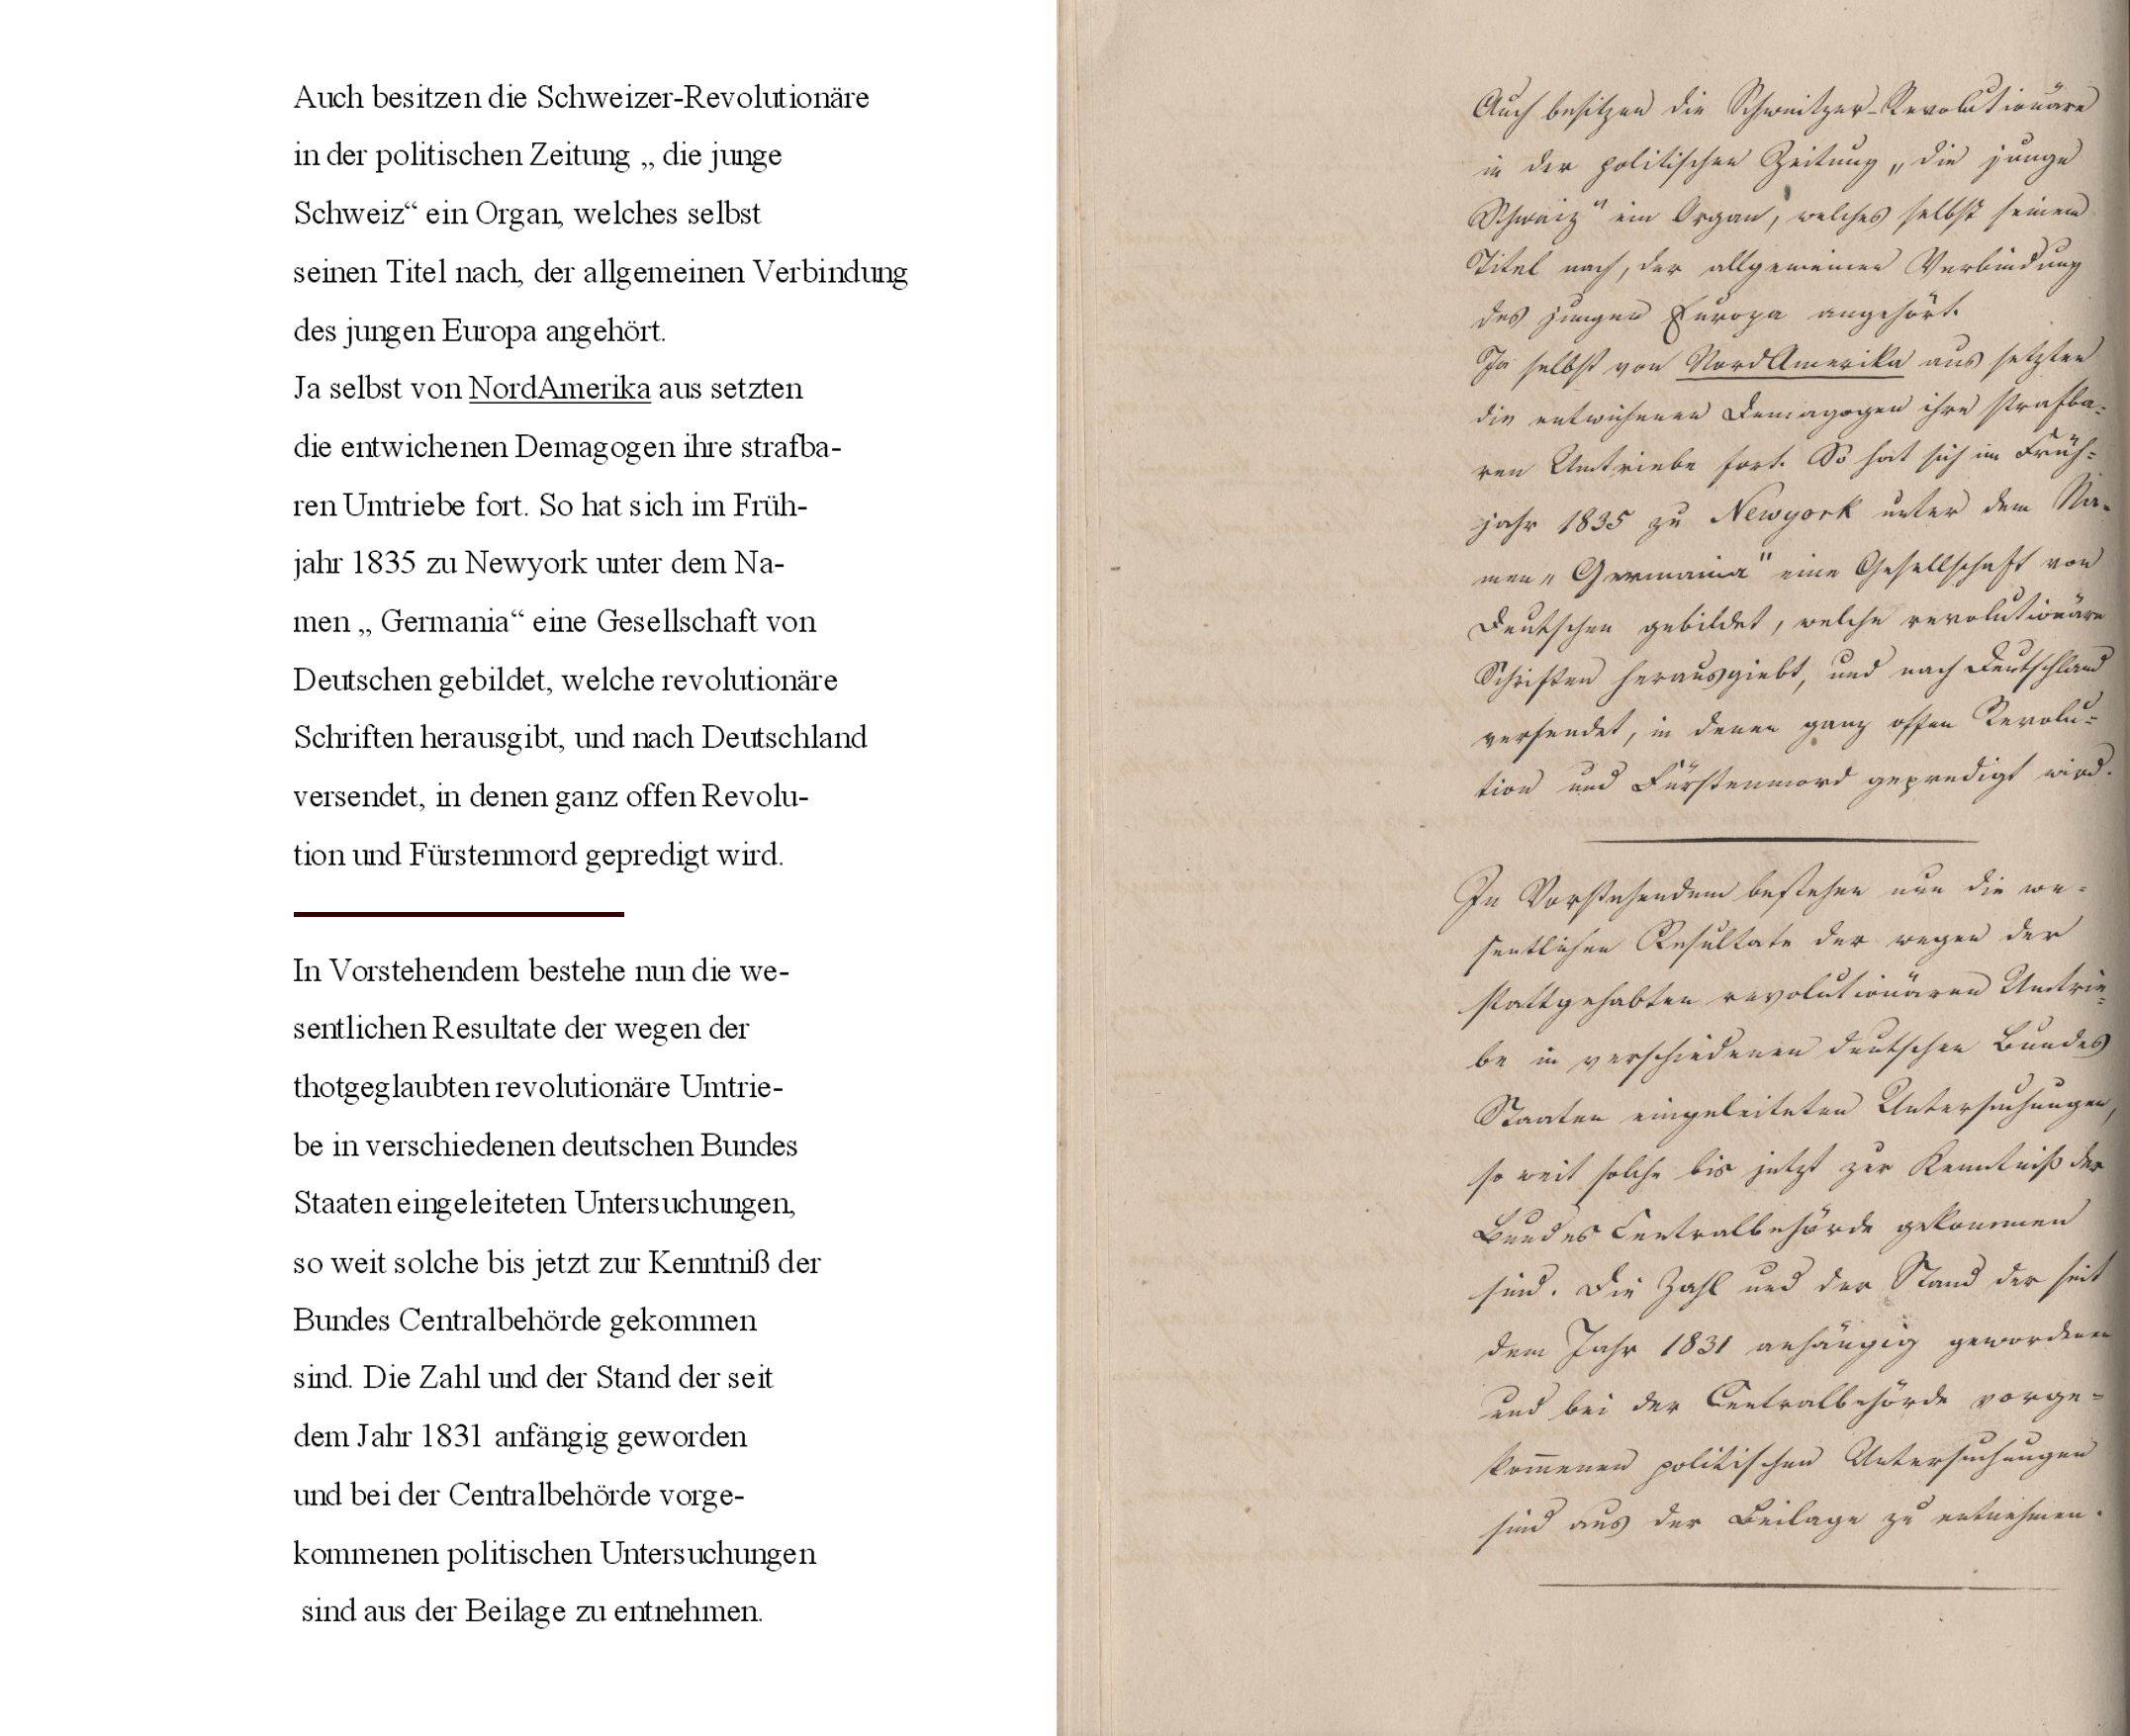 Auch besitzen die Schweizer-Revolutionäre
in der politischen Zeitung „ die junge
Schweiz“ ein Organ, welches selbst
seinen Titel nach, der allgemeinen Verbindung
des jungen Europa angehört.
Ja selbst von NordAmerika aus setzten
die entwichenen Demagogen ihre strafba-
ren Umtriebe fort. So hat sich im Früh-
jahr 1835 zu Newyork unter dem Na-
men „ Germania“ eine Gesellschaft von
Deutschen gebildet, welche revolutionäre
Schriften herausgibt, und nach Deutschland
versendet, in denen ganz offen Revolu-
tion und Fürstenmord gepredigt wird.
In Vorstehendem bestehe nun die we-
sentlichen Resultate der wegen der
thotgeglaubten revolutionäre Umtrie-
be in verschiedenen deutschen Bundes
Staaten eingeleiteten Untersuchungen,
so weit solche bis jetzt zur Kenntniß der
Bundes Centralbehörde gekommen
sind. Die Zahl und der Stand der seit
dem Jahr 1831 anfängig geworden
und bei der Centralbehörde vorge-
kommenen politischen Untersuchungen
sind aus der Beilage zu entnehmen.
Auch besitzen die Schweitzer-Revolutionäre
in der politischen Zeitung „die junge
Schweiz" ein Organ, welches selbst seinem
Titel nach, der allgemeinen Verbindung
des jungen Europa angehört.
Ja selbst von NordAmerika aus setzten
die entwichenen Demagogen ihre strafba-
ren Umtriebe fort. So hat sich im Früh-
jahr 1835 zu Newyork unter dem Na-
men „Germania" eine Gesellschaft von
Deutschen gebildet, welche revolutionäre
Schriften herausgiebt, und nach Deutschland
versendet, in denen ganz offen Revolu-
tion und Fürstenmord gepredigt wird.
In Vorstehendem bestehen nun die we-
sentlichen Resultate der wegen der
stattgehabten revolutionären Umtrie-
be in verschiedenen deutschen Bundes
Staaten eingeleiteten Untersuchungen,
so weit solche bis jetzt zur Kenntniß der
Bundes Centralbehörde gekommen
sind. Die Zahl und der Stand der seit
dem Jahr 1831 anhängig gewordenen
und bei der Centralbehörde vorge-
kom̅enen politischen Untersuchungen
sind aus der Beilage zu entnehmen.